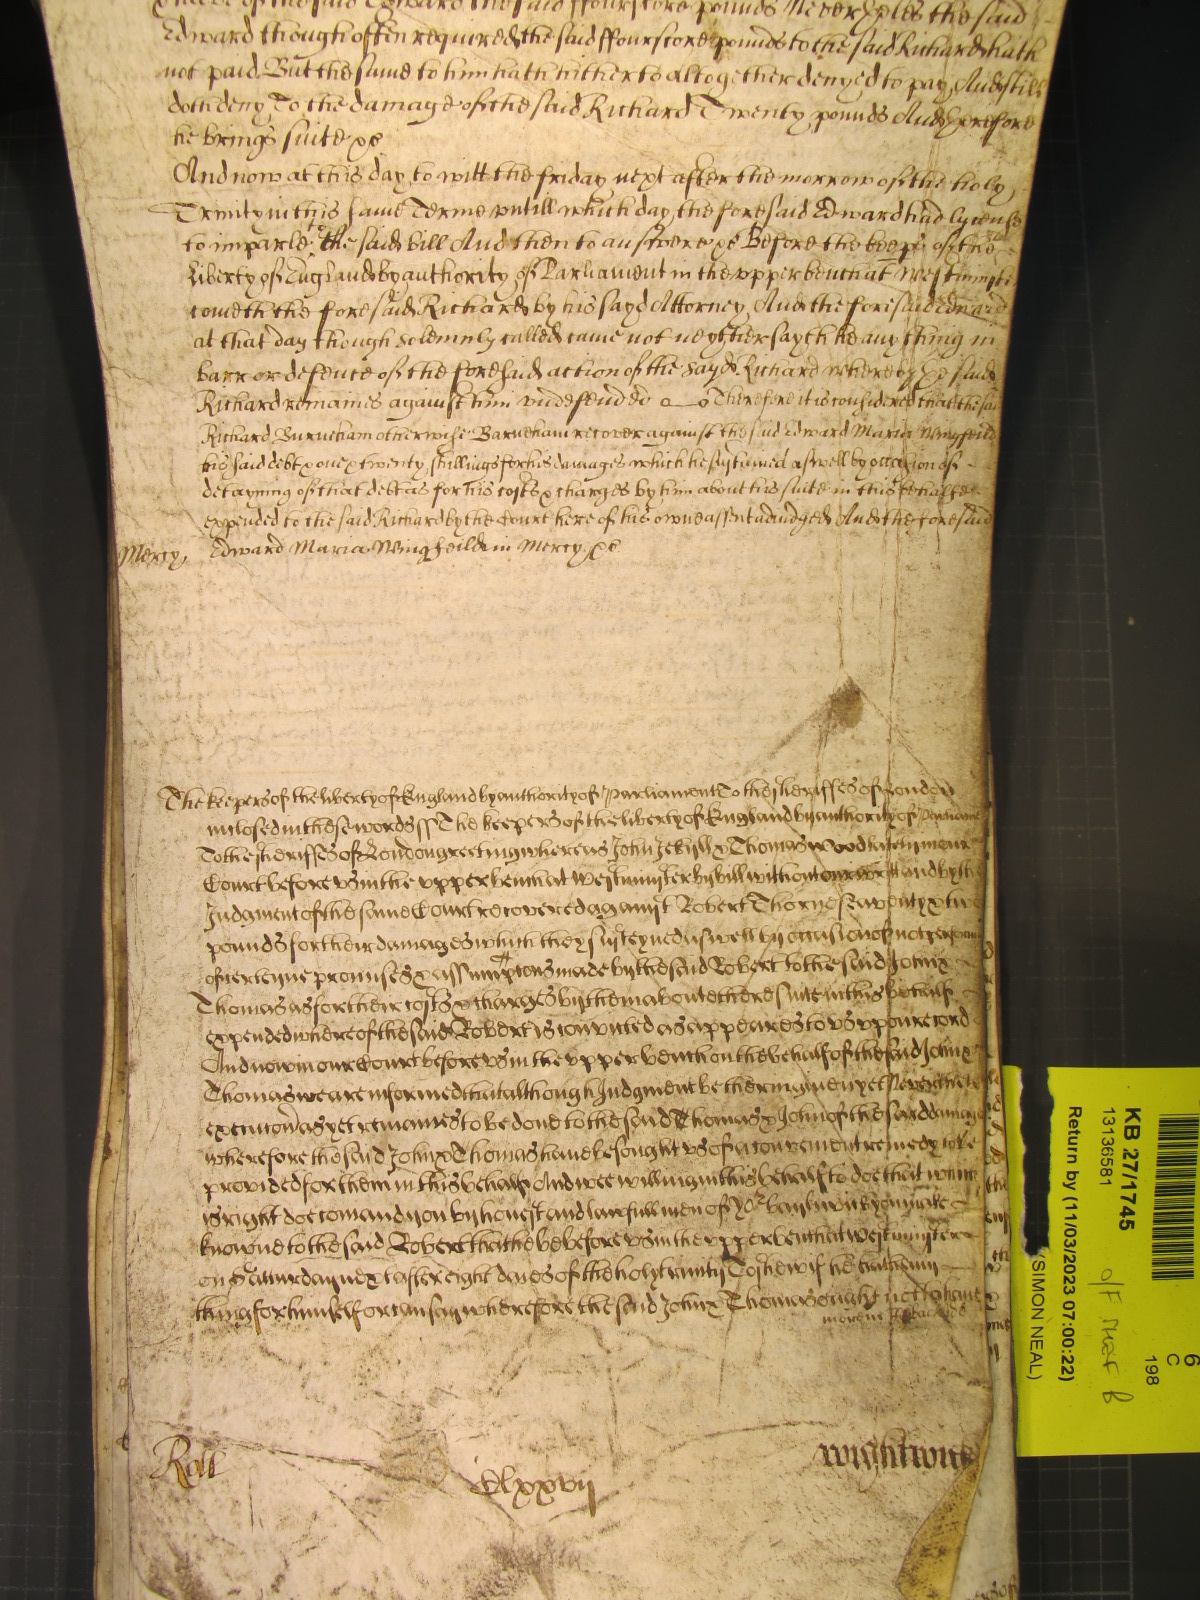 of the said Edward the said ffourscore pounds Neverthles the said
Edward though often required the said ffourscore pounds to the said Richard hath
not paid But the same to him hath hitherto altogether denyed to pay And still
doth deny To the damage of the said Richard Twenty pounds And therefore
he brings suite &c
And now at this day to witt the friday next after the morrow of the holy
Trinity in this same Terme untill which day the foresaid Edward had lycense
to imparle to the said bill And then to answere &c Before the keepers of the
liberty of England by authority of Parliament in the upper bench at Westminster
cometh the foresaid Richard by his sayd Attorney And the foresaid Edward
at that day though solemnly called came not neyther sayth he any thing in
barr or defence of the foresaid action of the sayd Richard whereby the said
Richard remaines against him undefended Therefore it is considered that the said
Richard Burneham otherwise Barneham recover against the said Edward Maria Wingfeild
his said debt & one & twenty shillings for his damages which he sustained aswell by occasion of
detayning of that debt as for his costs & charges by him about his suite in this behalfe
expended to the said Richard by the Court here of his owne assent adiudged And the foresaid
Mercy Edward Maria Wingfeild in Mercy &c
The keepers of the liberty of England by authority of Parliament To the sheriffes of London
inclosed in these words ss The keepers of the liberty of England by authority of Parliament
To the sheriffes of London greeting whereas John Jekyll & Thomas Wood lately in our
Court before us in the upper bench at Westminster by bill without our writt and by the
Judgment of the same Court recovered against Robert Thorne seaventy & two
pounds for their damages which they susteyned aswell by occasion of not performing
of certeyne promises & assumptions made by the said Robert to the said John &
Thomas as for their costs & charges by them aboute there suite in this behalfe
expended whereof the said Robert is convicted as appeares to us upon record
And now in our Court before us in the upper bench on the behalf of the said John &
Thomas we are informed that although Judgment be therein given yet Neverthelesse
execution as yet remaines to be done to the said Thomas & John of the said damages
wherefore the said John & Thomas have besought us of a convenient remedy to be
provided for them in this behalfe And wee willing in this behalfe to doe that which
is right doe comand you by honest and lawfull men of yor bayliwick you make
knowne to the said Robert that he be before us in the upper bench at Westminster
on Saturday next after eight dayes of the holy trinity To shew if he hath any
thing for himself or can say wherefore the said John & Thomas ought not to have
Roll
Clxxvij
Wightwick
KB 27/1745
13136581
Return by (11/03/2023 07:00:22)
(SIMON NEAL)
6
C
198